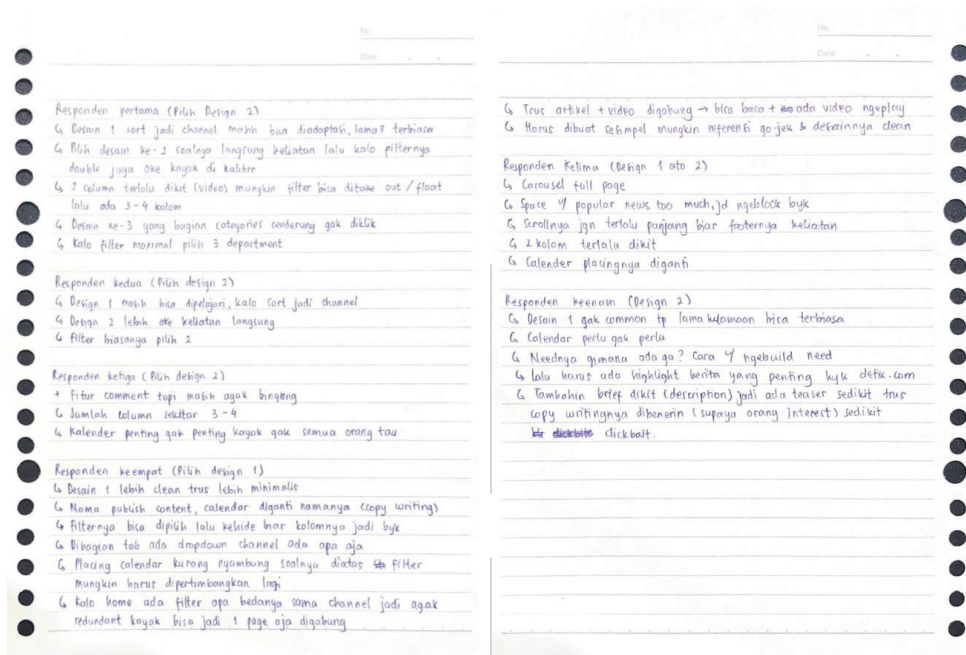 No.
Date
Responden pertama (Pilih Design 2)
↳ Desain 1 sort jadi channel masih bisa diadaptasi, lama2 terbiasa
↳ Pilih desain ke-2 soalnya langsung keliatan lalu kalo filternya
double juga oke kayak di kalibrr
↳ 2 column terlalu dikit (video) mungkin filter bisa ditake out / float
lalu ada 3-4 kolom
↳ Desain ke-3 yang bagian categories cenderung gak diklik
↳ Kalo filter maximal pilih 3 department
Responden kedua (Pilih design 2)
↳ Design 1 masih bisa dipelajari, kalo sort jadi channel
↳ Design 2 lebih oke keliatan langsung
↳ Filter biasanya pilih 2
Responden ketiga (Pilih design 2)
+ Fitur comment tapi masih agak bingung
↳ Jumlah column sekitar 3-4
↳ Kalender penting gak penting kayak gak semua orang tau
Responden keempat (Pilih design 1)
↳ Desain 1 lebih clean trus lebih minimalis
↳ Nama publish content, calendar diganti namanya (copy writing)
↳ Filternya bisa dipilih lalu kehide biar kolomnya jadi byk
↳ Dibagian tab ada dropdown channel ada apa aja
↳ Placing calendar kurang nyambung soalnya diatas filter
mungkin harus dipertimbangkan lagi
↳ Kalo home ada filter apa bedanya sama channel jadi agak
redundant kayak bisa jadi 1 page aja digabung
No.
Date
↳ Trus artikel + video digabung → bisa baca + ada video ngeplay
↳ Harus dibuat sesimpel mungkin referensi go-jek & desainnya clean
Responden Kelima (Design 1 ato 2)
↳ Carousel full page
↳ Space y/ popular news too much, jd ngeblock byk
↳ Scrollnya jgn terlalu panjang biar footernya keliatan
↳ 2 kolom terlalu dikit
↳ Calender placingnya diganti
Responden keenam (Design 2)
↳ Desain 1 gak common tp lama kelamaan bisa terbiasa
↳ Calendar perlu gak perlu
↳ Neednya gimana ada ga? Cara y/ ngebuild need
↳ lalu harus ada highlight berita yang penting kyk detik.com
↳ Tambahin brief dikit (description) jadi ada teaser sedikit trus
copy writingnya dibenerin (supaya orang interest) sedikit
clickbait.